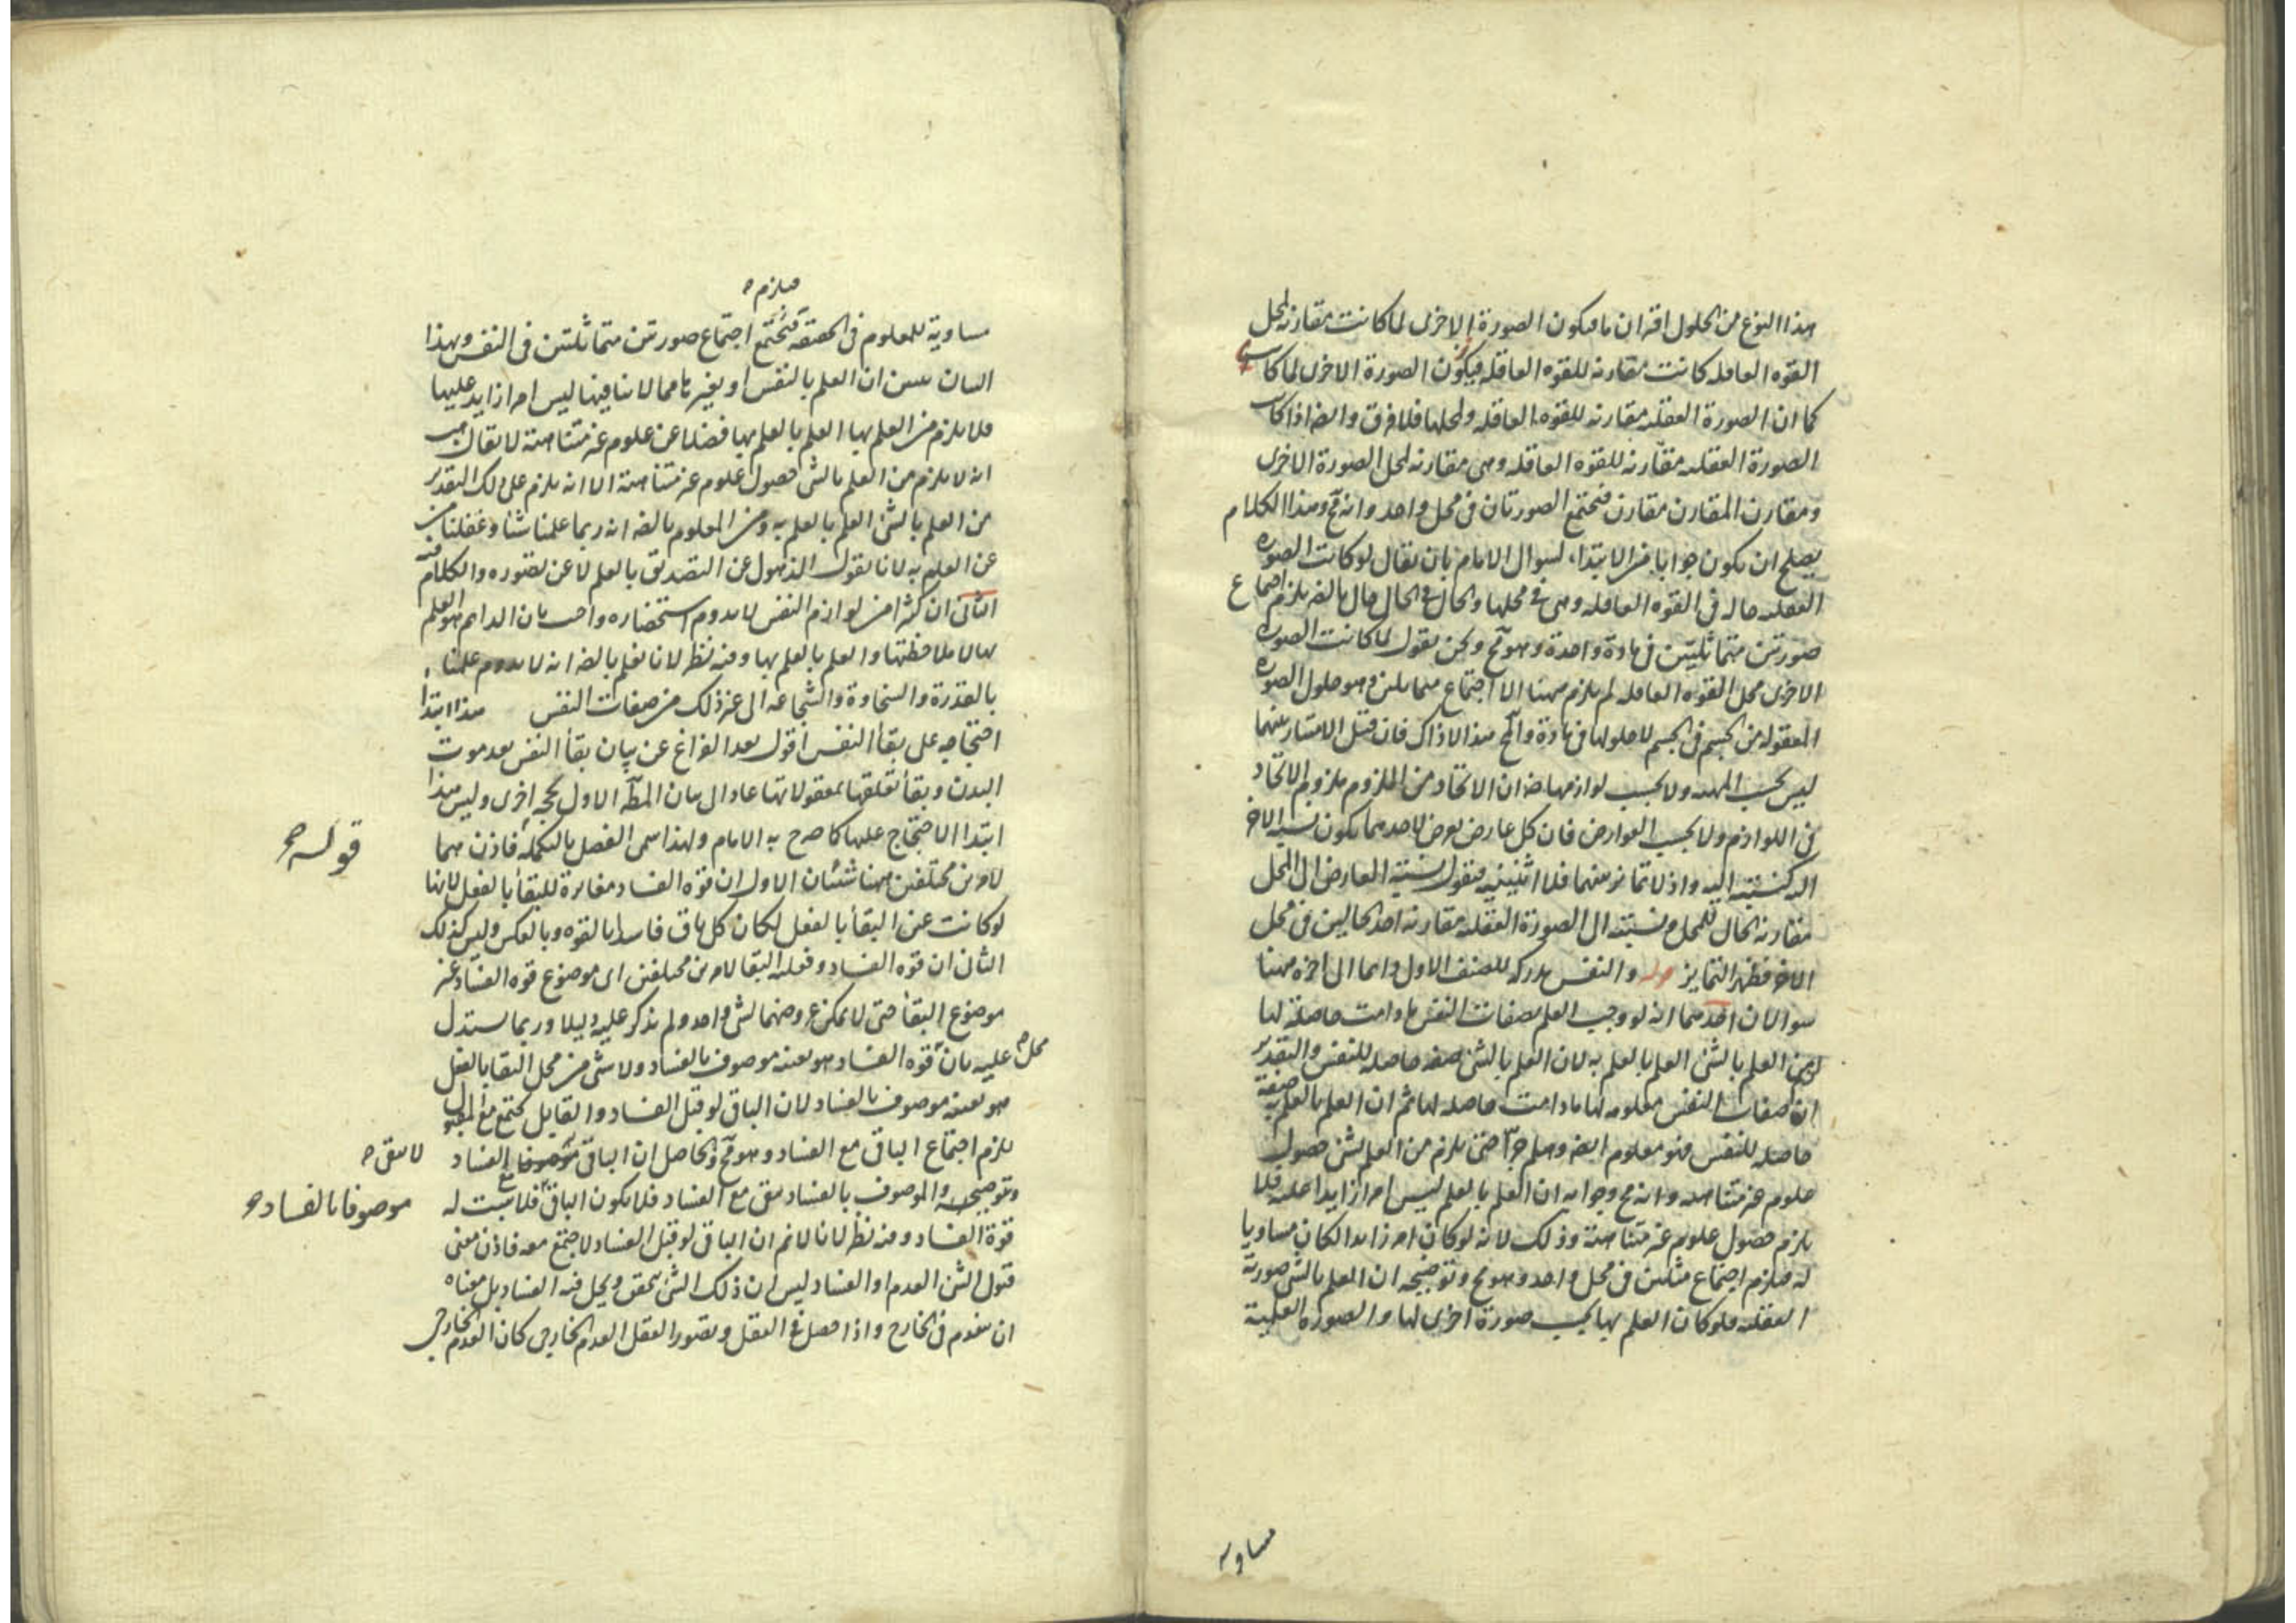 هذا النوع من الحلول اقتران ما فيكون الصورة الاخرى لما كانت مقارنه لمحل
القوه العاقله كانت مقارنه للقوه العاقله فيكون الصورة الاخرى لما كانت
كما ان الصورة العقليه مقارنه للقوه العاقله ولمحلها فلا فرق وايضا اذا كانت
الصورة العقليه مقارنه للقوه العاقله وهى مقارنه لمحل الصورة الاخرى
ومقارن المقارن مقارن فيجتمع الصورتان فى محل واحد وانه مح وهذا الكلام
يصلح ان يكون جوابا من الابتداء لسوال الامام بان يقال لو كانت الصوره
العقليه حاله فى القوه العاقله وهى فى محلها والحال فى الحال حال بالضه يلزم اجتماع
صورتين متماثلتين فى مادة واحدة وهو مح ونحن نقول لما كانت الصوره
الاخرى محل القوه العاقله لم يلزم ههنا الا اجتماع متماثلين وهو حلول الصوره
المعقوله من الجسم فى الجسم لا حلولها فى مادة والمح هذا لا ذاك فان قيل الامتياز بينهما
ليس بحسب المهيه ولا بحسب لوازمها ضه ان الاتحاد من الملزوم ملزوم الاتحاد
فى اللوازم ولا بحسب العوارض فان كل عارض يعرض لاحدهما يكون نسبه الاخر
اليه كنسبته اليه واذ لا تمايز بينهما فلا اثنينيه فنقول نسبة العارض الى المحل
مقارنه الحال للمحل ونسبته الى الصورة العقليه مقارنه احد الحالين فى محل
الاخر فظهر التمايز قوله والنفس مدركه للصنف الاول دايما الى اخره ههنا
سوالان احدهما انه لو وجب العلم بصفات النفس ما دامت حاصلة لها
لزم من العلم بالشئ العلم بالعلم به لان العلم بالشئ صفه حاصله للنفس والتقدير
ان صفات النفس معلومه لها ما دامت حاصله لها ثم ان العلم بالعلم به صفة
حاصله للنفس فهو معلوم ايضه وهلم جرّا حتى يلزم من العلم بشئ حصول
علوم غير متناهيه وانه مح وجوابه ان العلم بالعلم ليس امرا زايدا عليه فلا
يلزم حصول علوم غير متناهية وذلك لانه لو كان امرا زايدا لكان مساويا
له فيلزم اجتماع مثلين فى محل واحد وهو مح وتوضيحه ان العلم بالشئ صورته
العقليه فلو كان العلم بها بحسب صورة اخرى لها والصوره العلمية
مساويه
فيلزم
مساوية للمعلوم فى الحقيقه فيجتمع اجتماع صورتين متماثلتين فى النفس وبهذا
البيان يتبين ان العلم بالنفس او بغيرها مما لا ينافيها ليس امرا زايد عليها
فلا يلزم من العلم بها العلم بالعلم بها فضلا عن علوم غير متناهية لا يقال هب
انه لا يلزم من العلم بالشئ حصول علوم غير متناهية الا انه يلزم على ذلك التقدير
من العلم بالشئ العلم بالعلم به ومن المعلوم بالضه انه ربما علمنا شئا وغفلنا
عن العلم به لانا نقول الذهول عن التصديق بالعلم لا عن تصوره والكلام فيه
الثانى ان كثيرا من لوازم النفس لا يدوم استحضاره واجيب بان الدايم هو العلم
بها لا ملاحظتها والعلم بالعلم بها وفيه نظر لانا نعلم بالضه انه لا يدوم علمنا
بالقدرة والسخاوة والشجاعه الى غير ذلك من صفات النفس هذا ابتدا
احتجاجه على بقاء النفس اقول بعد الفراغ عن بيان بقاء النفس بعد موت
البدن وبقاء تعلقها بمعقولاتها عاد الى بيان المط الاول بحجه اخرى وليس هذا
قوله
ابتدا الاحتجاج عليها كما صرح به الامام ولهذا سمى الفصل بالتكملة فاذن هما
لامرين مختلفين ههنا شيئان الاول ان قوه الفساد مغايرة للبقاء بالفعل لانها
لو كانت عين البقاء بالفعل لكان كل باق فاسدا بالقوه وبالعكس وليس كذلك
الثانى ان قوه الفساد وفعليه البقاء لامرين مختلفين اى موضوع قوه الفساد غير
موضوع البقاء حتى لا يمكن عروضهما لشئ واحد ولم يذكر عليه دليلا وربما يستدل
محل
عليه بان قوه الفساد هو بعينه موصوف بالفساد ولا شئ من محل البقاء بالفعل
هو بعينه موصوف بالفساد لان الباقى لو قبل الفساد والقابل يجتمع مع المقبول
يلزم اجتماع الباقى مع الفساد وهو مح والحاصل ان الباقى الفساد
لا يبقى
وتوضيحه والموصوف بالفساد يبقى مع الفساد فلا يكون الباقى فلا يثبت له
موصوفا بالفساد
قوة الفساد وفيه نظر لانا لا نم ان الباقى لو قبل الفساد لاجتمع معه فاذن معنى
قبول الشئ العدم او الفساد ليس ان ذلك الشئ يتحقق ويحل فيه الفساد بل معناه
ان ينعدم فى الخارج واذا حصل فى العقل وتصور العقل العدم الخارجى كان العدم الخارجى